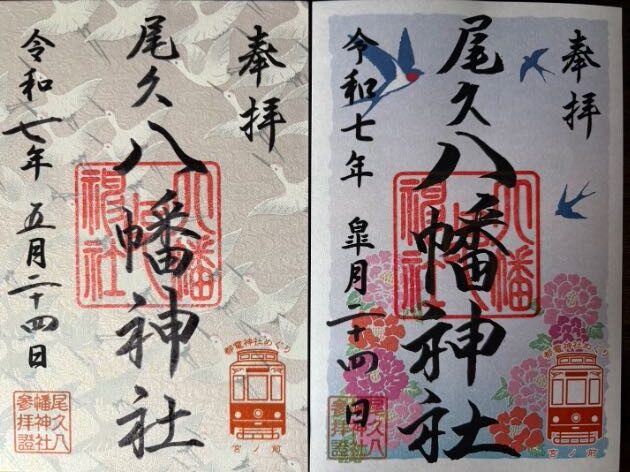 奉拝
尾久八幡神社
令和七年 五月二十四日
八幡神社
都電神社めぐり
宮ノ前
尾久八
幡神社
参拝證
奉拝
尾久八幡神社
令和七年 皐月二十四日
八幡神社
都電神社めぐり
宮ノ前
尾久八
幡神社
参拝證